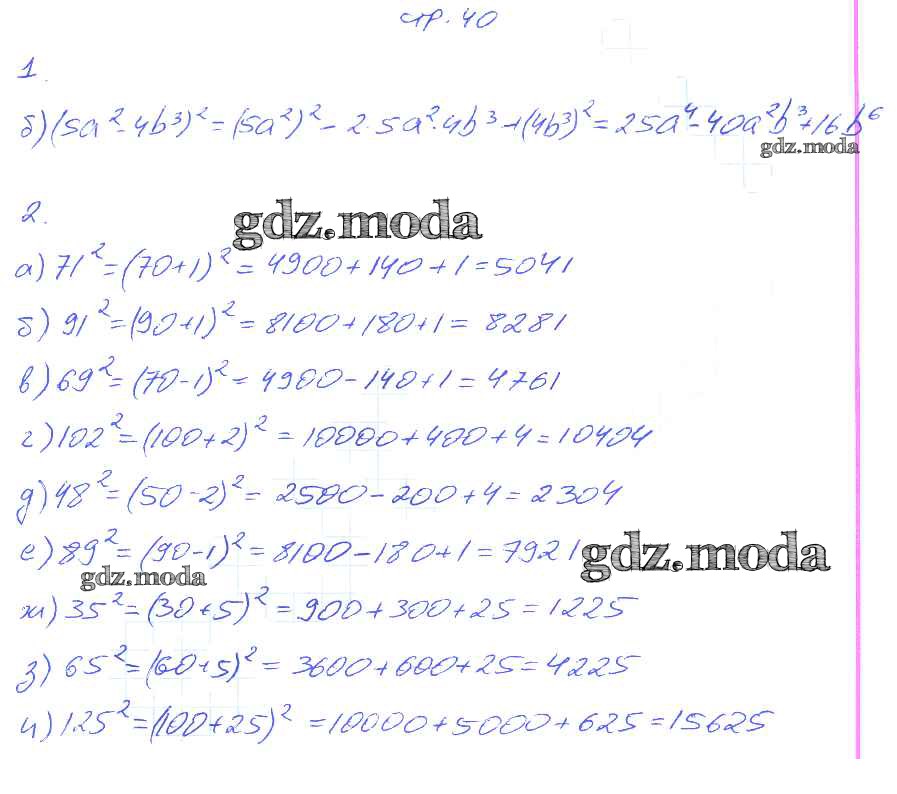 стр. 40
1.
б) (5a² - 4b³)² = (5a²)² - 2·5a²·4b³ + (4b³)² = 25a⁴ - 40a²b³ + 16b⁶
gdz.moda
2.
gdz.moda
а) 71² = (70+1)² = 4900 + 140 + 1 = 5041
б) 91² = (90+1)² = 8100 + 180 + 1 = 8281
в) 69² = (70-1)² = 4900 - 140 + 1 = 4761
г) 102² = (100+2)² = 10000 + 400 + 4 = 10404
д) 48² = (50-2)² = 2500 - 200 + 4 = 2304
е) 89² = (90-1)² = 8100 - 180 + 1 = 7921
gdz.moda
gdz.moda
ж) 35² = (30+5)² = 900 + 300 + 25 = 1225
з) 65² = (60+5)² = 3600 + 600 + 25 = 4225
и) 125² = (100+25)² = 10000 + 5000 + 625 = 15625